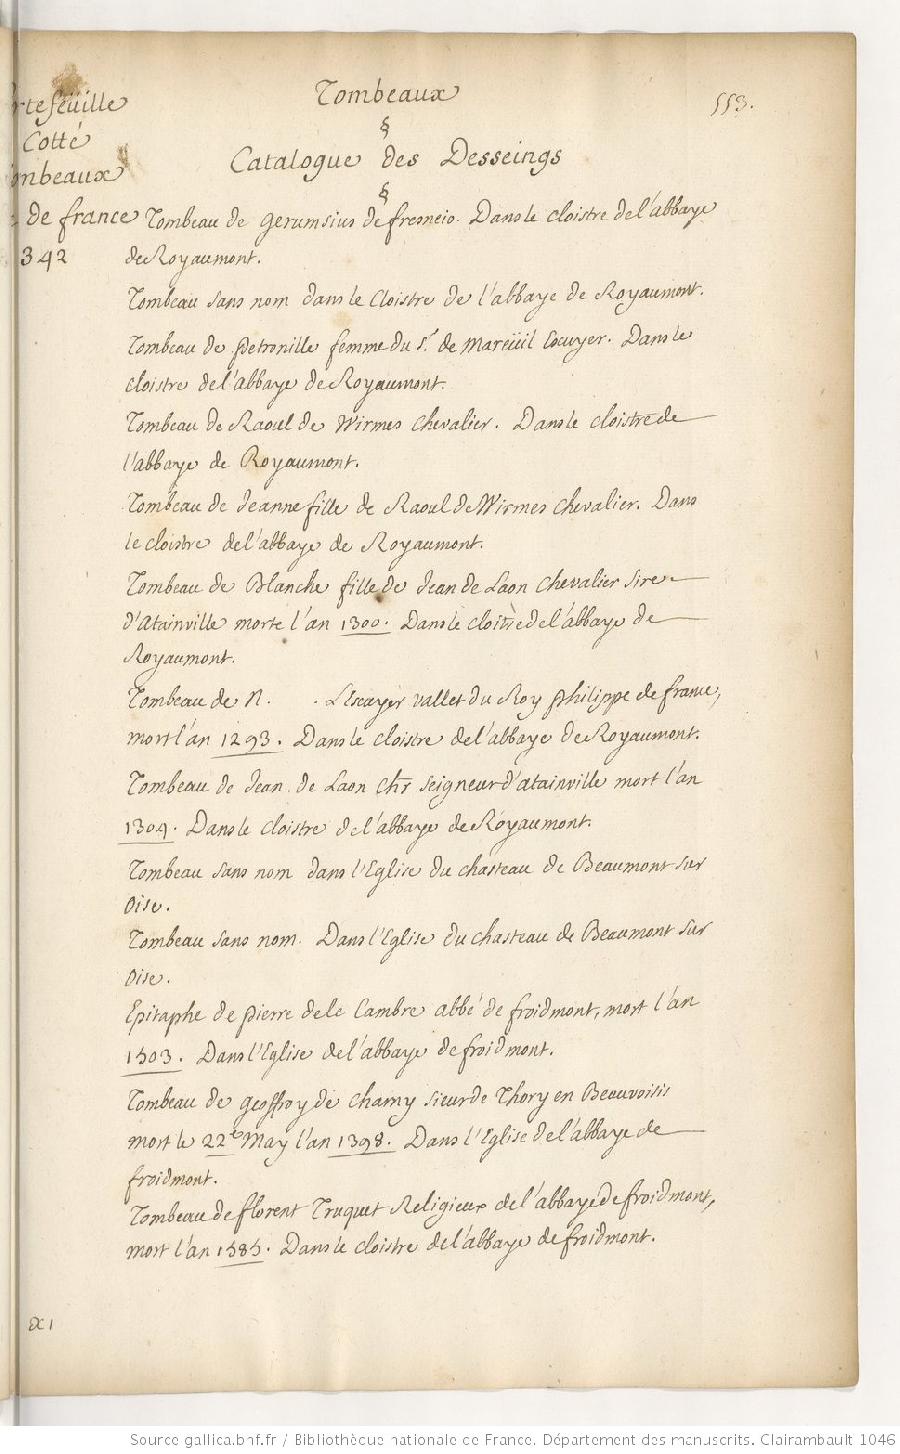 Tombeaux
553.
§
Catalogue des Desseings
§
rtefeüille
Cotté
ombeaux
de france
342
Tombeau de Gerumsius de fresneio. Dans le cloistre de l'abbaye
de Royaumont.
Tombeau sans nom dans le Cloistre de l'abbaye de Royaumont.
Tombeau de Petronille femme du Sr. de Mareüil Escuyer. Dans le
cloistre de l'abbaye de Royaumont.
Tombeau de Raoul de Wirmes Chevalier. Dans le cloistre de
l'abbaye de Royaumont.
Tombeau de Jeanne fille de Raoul de Wirmes Chevalier. Dans
le cloistre de l'abbaye de Royaumont.
Tombeau de Blanche fille de Jean de Laon Chevalier sire
d'Atainville morte l'an 1300. Dans le cloitre de l'abbaye de
Royaumont.
Tombeau de N. . L'Escuyer vallet du Roy Philippe de france,
mort l'an 1293. Dans le cloistre de l'abbaye de Royaumont.
Tombeau de Jean de Laon chr seigneur d'atainville mort l'an
1304. Dans le Cloistre de l'abbaye de Royaumont.
Tombeau sans nom dans l'Eglise du chasteau de Beaumont sur
Oise.
Tombeau sans nom. Dans l'Eglise du chasteau de Beaumont sur
Oise.
Epitaphe de pierre dele Cambre abbé de froidmont, mort l'an
1503. Dans l'Eglise de l'abbaye de froidmont.
Tombeau de Geoffroy de Charny sieur de Thory en Beauvoisis
mort le 22e May l'an 1398. Dans l'Eglise de l'abbaye de
froidmont.
Tombeau de florent Truquet Religieux de l'abbaye de froidmont,
mort l'an 1585. Dans le cloistre de l'abbaye de froidmont.
Source gallica.bnf.fr / Bibliothèque nationale de France. Département des manuscrits. Clairambault 1046